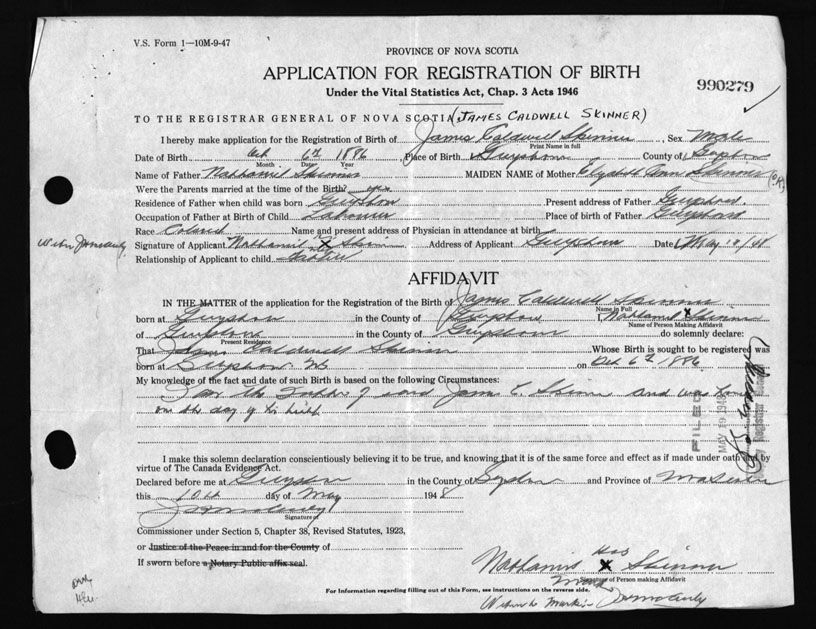 V.S. Form 1—10M-9-47
PROVINCE OF NOVA SCOTIA
APPLICATION FOR REGISTRATION OF BIRTH
990279
Under the Vital Statistics Act, Chap. 3 Acts 1946
TO THE REGISTRAR GENERAL OF NOVA SCOTIA (JAMES CALDWELL SKINNER)
I hereby make application for the Registration of Birth of James Caldwell Skinner Sex Male
Print Name in full
Date of Birth Oct 6th 1886 Place of Birth Guysboro County of
Month Day Year
Name of Father Nathaniel Skinner MAIDEN NAME of Mother Elizabeth Ann Skinner
Were the Parents married at the time of the Birth? yes
Residence of Father when child was born Guysboro Present address of Father Guysboro
Occupation of Father at Birth of Child Labourer Place of birth of Father Guysboro
Race Colored Name and present address of Physician in attendance at birth
Signature of Applicant Nathaniel X Skinner Address of Applicant Guysboro Date May 10/48
Relationship of Applicant to child Father
AFFIDAVIT
IN THE MATTER of the application for the Registration of the Birth of James Caldwell Skinner
Name in Full
born at Guysboro in the County of Guysboro I, Nathaniel X Skinner
Name of Person Making Affidavit
of Guysboro in the County of Guysboro do solemnly declare:
Present Residence
That James Caldwell Skinner Whose Birth is sought to be registered was
born at Guysboro NS on Oct 6th 1886
My knowledge of the fact and date of such Birth is based on the following Circumstances:
I am the Father of said James C. Skinner and was home
on the day of his birth
FILED
MAY 19 1948
I make this solemn declaration conscientiously believing it to be true, and knowing that it is of the same force and effect as if made under oath and by
virtue of The Canada Evidence Act.
Declared before me at Guysboro in the County of Guysboro and Province of Nova Scotia
this 10th day of May 1948
Signature of
Commissioner under Section 5, Chapter 38, Revised Statutes, 1923,
or Justice of the Peace in and for the County of
If sworn before a Notary Public affix seal.
his
Nathaniel X Skinner
mark
Signature of Person making Affidavit
For Information regarding filling out of this Form, see instructions on the reverse side.
Witness to Mark